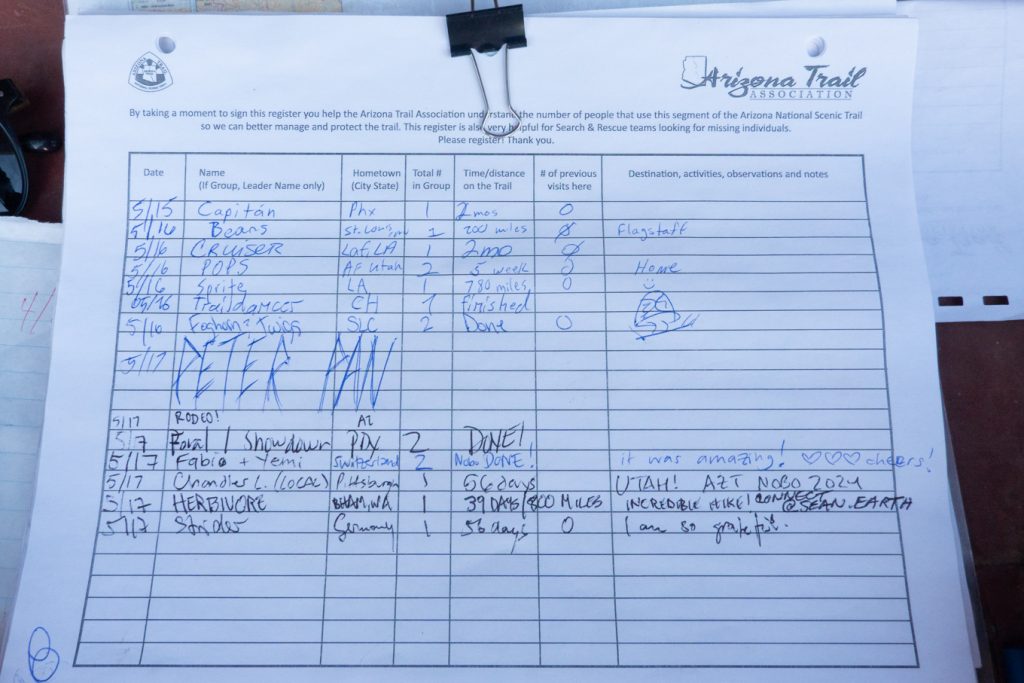 Arizona Trail
ASSOCIATION
By taking a moment to sign this register you help the Arizona Trail Association understand the number of people that use this segment of the Arizona National Scenic Trail
so we can better manage and protect the trail. This register is also very helpful for Search & Rescue teams looking for missing individuals.
Please register! Thank you.
Date Name (If Group, Leader Name only) Hometown (City State) Total # in Group Time/distance on the Trail # of previous visits here Destination, activities, observations and notes
5/15 Capitán Phx 1 2 mos 0
5/16 Bears St. Louis, 1 200 miles Ø Flagstaff
5/16 CRUISER Laf, LA 1 2mo Ø
5/16 POPS AF Utah 2 5 week 0 Home
5/16 Sprite LA 1 780 miles 0
05/16 CH 1 finished
5/16 Foghorn & Twigs SLC 2 Done 0
5/17 PETER PAN
5/17 RODEO! AZ
5/17 / Showdown PDX 2 DONE!
5/17 Fabio + Yemi Switzerland 2 Nobo DONE! it was amazing! ♡♡♡ cheers!
5/17 Chandler L. (LOCAL) Pittsburgh 1 56 days UTAH! AZT NOBO 2024
5/17 HERBIVORE BHAM, WA 1 39 DAYS / 800 MILES INCREDIBLE HIKE! CONNECT @SEAN.EARTH
5/17 Strider Germany 1 56 days 0 I am so grateful.